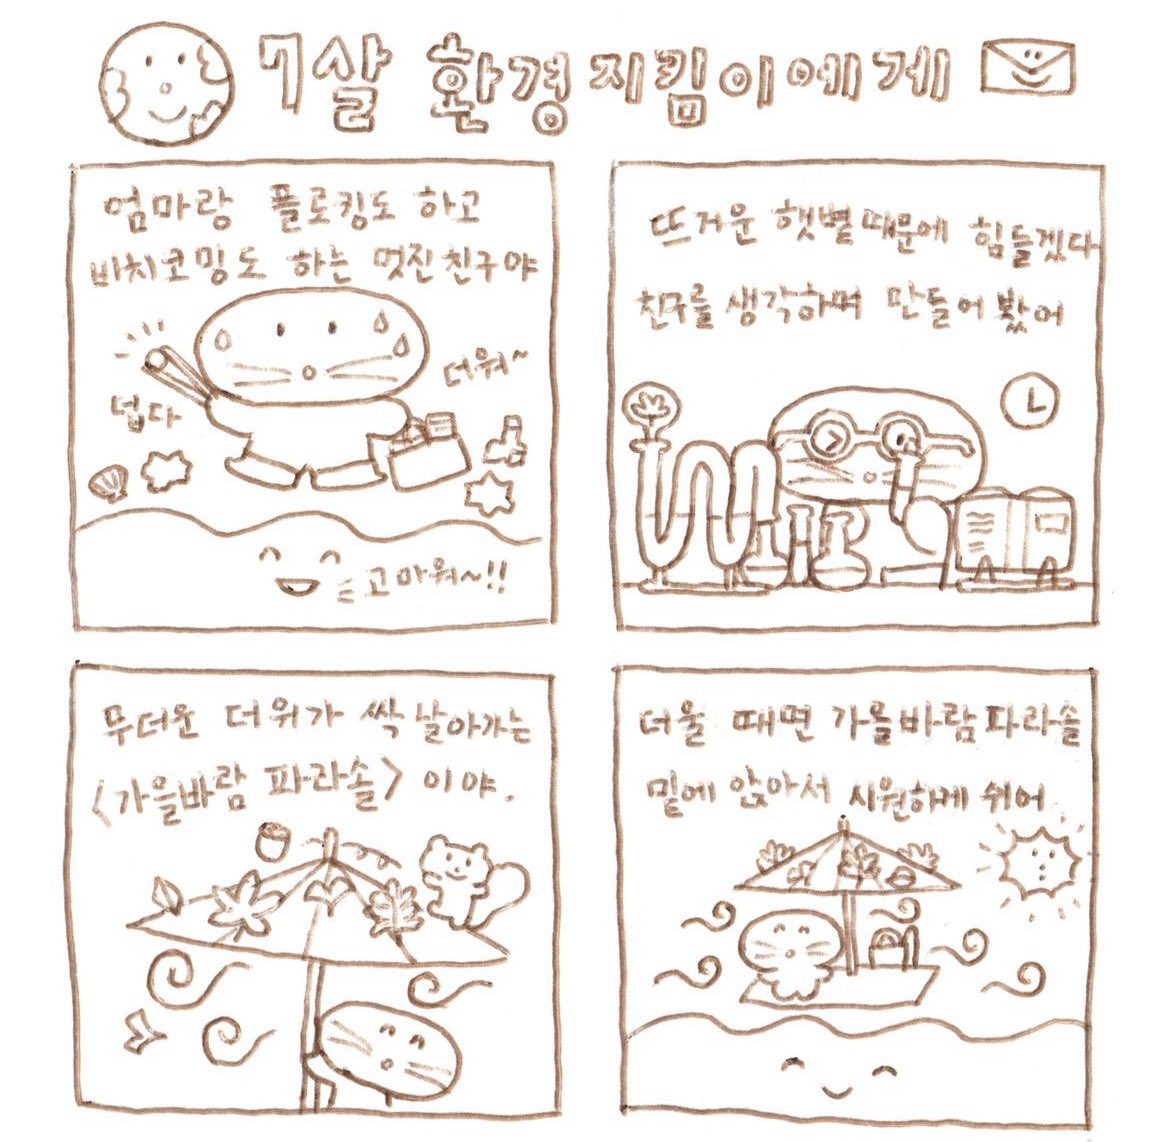 7살 환경지킴이에게
엄마랑 플로킹도 하고
비치코밍도 하는 멋진 친구야
더워~
덥다
고마워~!!
뜨거운 햇볕 때문에 힘들겠다
친구를 생각하며 만들어 봤어
무더운 더위가 싹 날아가는
<가을바람 파라솔> 이야.
더울 때면 가을바람 파라솔
밑에 앉아서 시원하게 쉬어